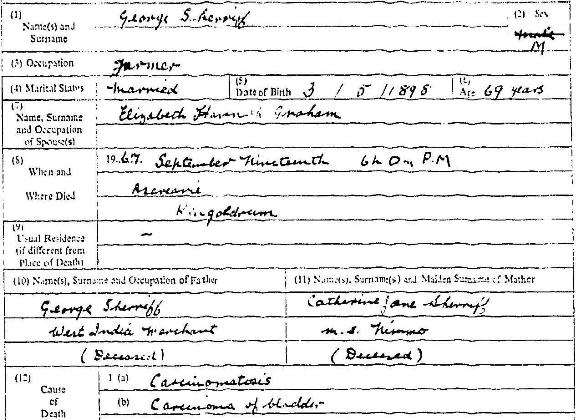 (1) Name(s) and Surname George Sherriff (2) Sex
M
(3) Occupation Farmer
(4) Marital Status Married (5) Date of Birth 3 / 5 / 1898 (6) Age 69 years
(7) Name, Surname and Occupation of Spouse(s) Elizabeth Graham
(8) When and Where Died 1967. September Nineteenth 6h 0m P.M
Ascreavie
Kingoldrum
(9) Usual Residence (if different from Place of Death) –
(10) Name(s), Surname and Occupation of Father (11) Name(s), Surname(s) and Maiden Surname of Mother
George Sherriff Catherine Jane Sherriff
West India Merchant m.s. Nimmo
(Deceased) (Deceased)
(12) Cause of Death I (a) Carcinomatosis
(b) Carcinoma of bladder